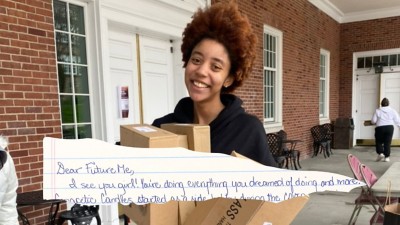 Dear Future Me,
I see you girl! You're doing everything you dreamed of doing and more.
Candles started as a side
ASS